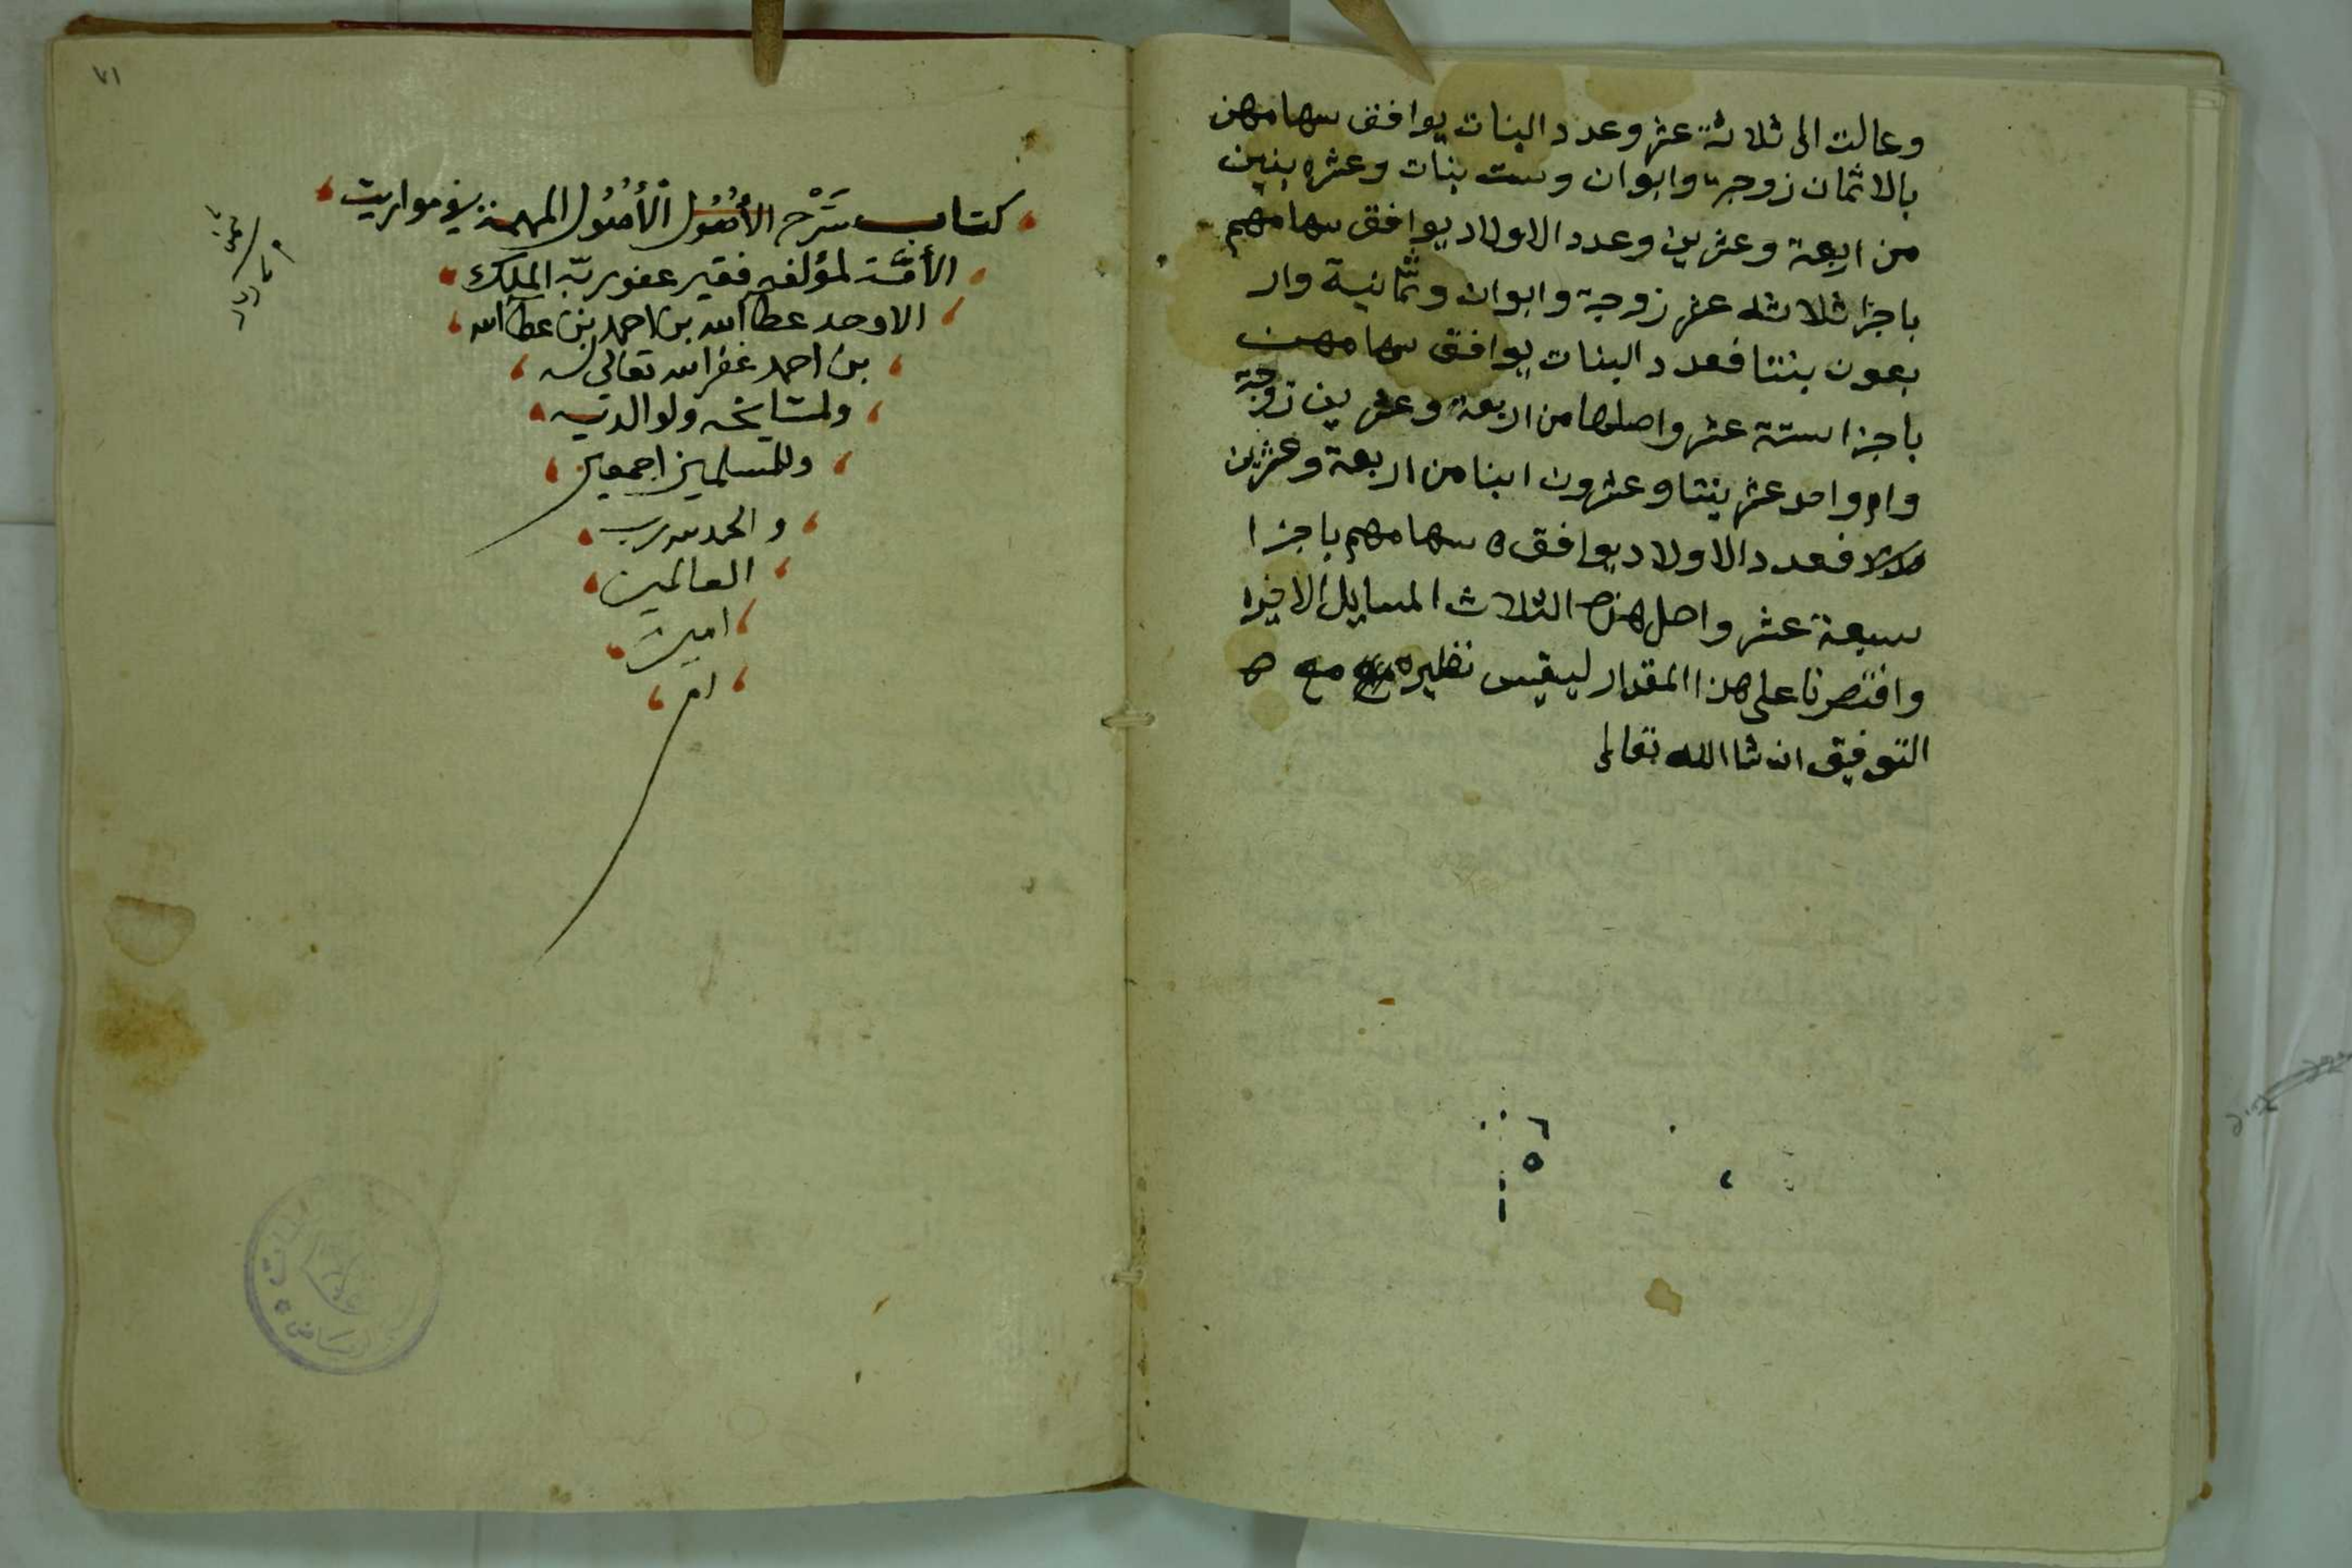 وعالت الى ثلاثة عشر وعدد البنات يوافق سهامهن
بالاثمان زوجة وابوان وست بنات وعشره بنين
من اربعة وعشرين وعدد الاولاد يوافق سهامهم
باجزا ثلاثه عشر زوجة وابوان وثمانية وار
بعون بنتا فعدد البنات يوافق سهامهن
باجزا ستة عشر واصلها من اربعة وعشرين زوجة
وام واحد عشر بنتا وعشرون ابنا من اربعة وعشرين
فعدد الاولاد يوافق سهامهم باجزا
سبعة عشر واصل هذه الثلاث المسايل الاخيره
واقتصرنا على هذا المقدار ليقيس نظيره مع
التوفيق ان شا الله تعالى
٦
٥
١
٧١
كتاب شَرْح الأُصُول الأُصُول المهمة في مواريث
الأمَّة لمؤلفه فقير عفو ربّه الملك
الاوحد عطاالله بن احمد بن عطاالله
بن احمد غفر الله تعالى له
ولمشايخه ولوالديه
وللمسلمين اجمعين
والحمد لله رب
العالمين
امين
ام